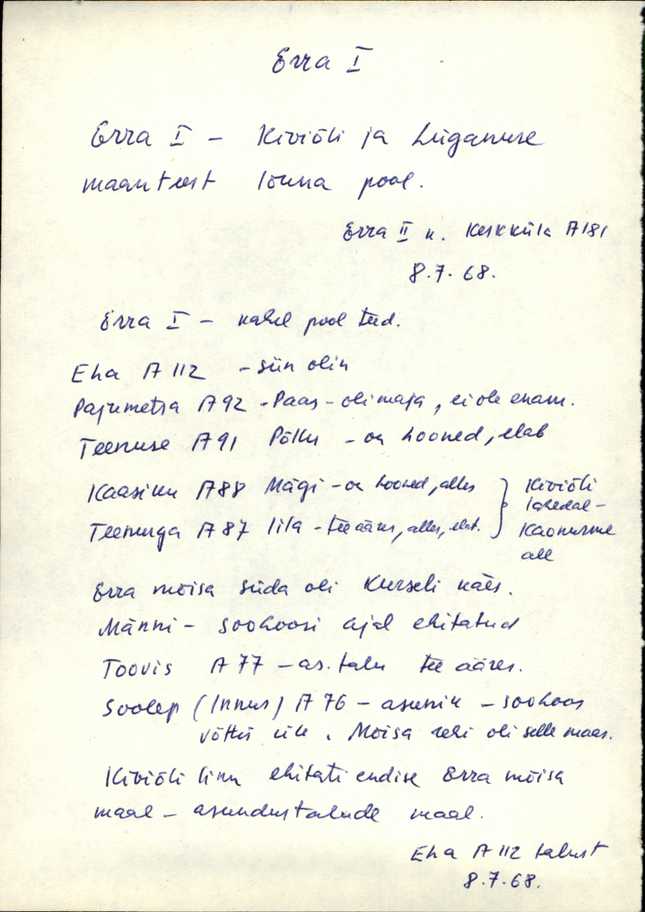 Erra I
Erra I – Kiviõli ja Lüganuse
maanteest lõuna pool.
Erra II k. Keskküla A181
8.7.68.
Erra I – kahel pool teed.
Eha A112 – siin olin
Pajumetsa A92 – Paas – oli maja, ei ole enam.
Teenuse A91 Põllu – on hooned, elab
Kaasiku A88 Mägi – on hooned, alles
Teenurga A87 Iila – tee ääres, alles, elat.
Kiviõli
lähedal –
alle
Erra mõisa süda oli Kurseli käes.
Männi – soohoosi ajal ehitatud
Toovis A77 – as. talu tee ääres.
Soolep (Innus) A76 – asunik – soohoos
võttis üle. Mõisa rehi oli selle maas.
Kiviõli linn ehitati endise Erra mõisa
maal – asundustalude maal.
Eha A112 talust
8.7.68.